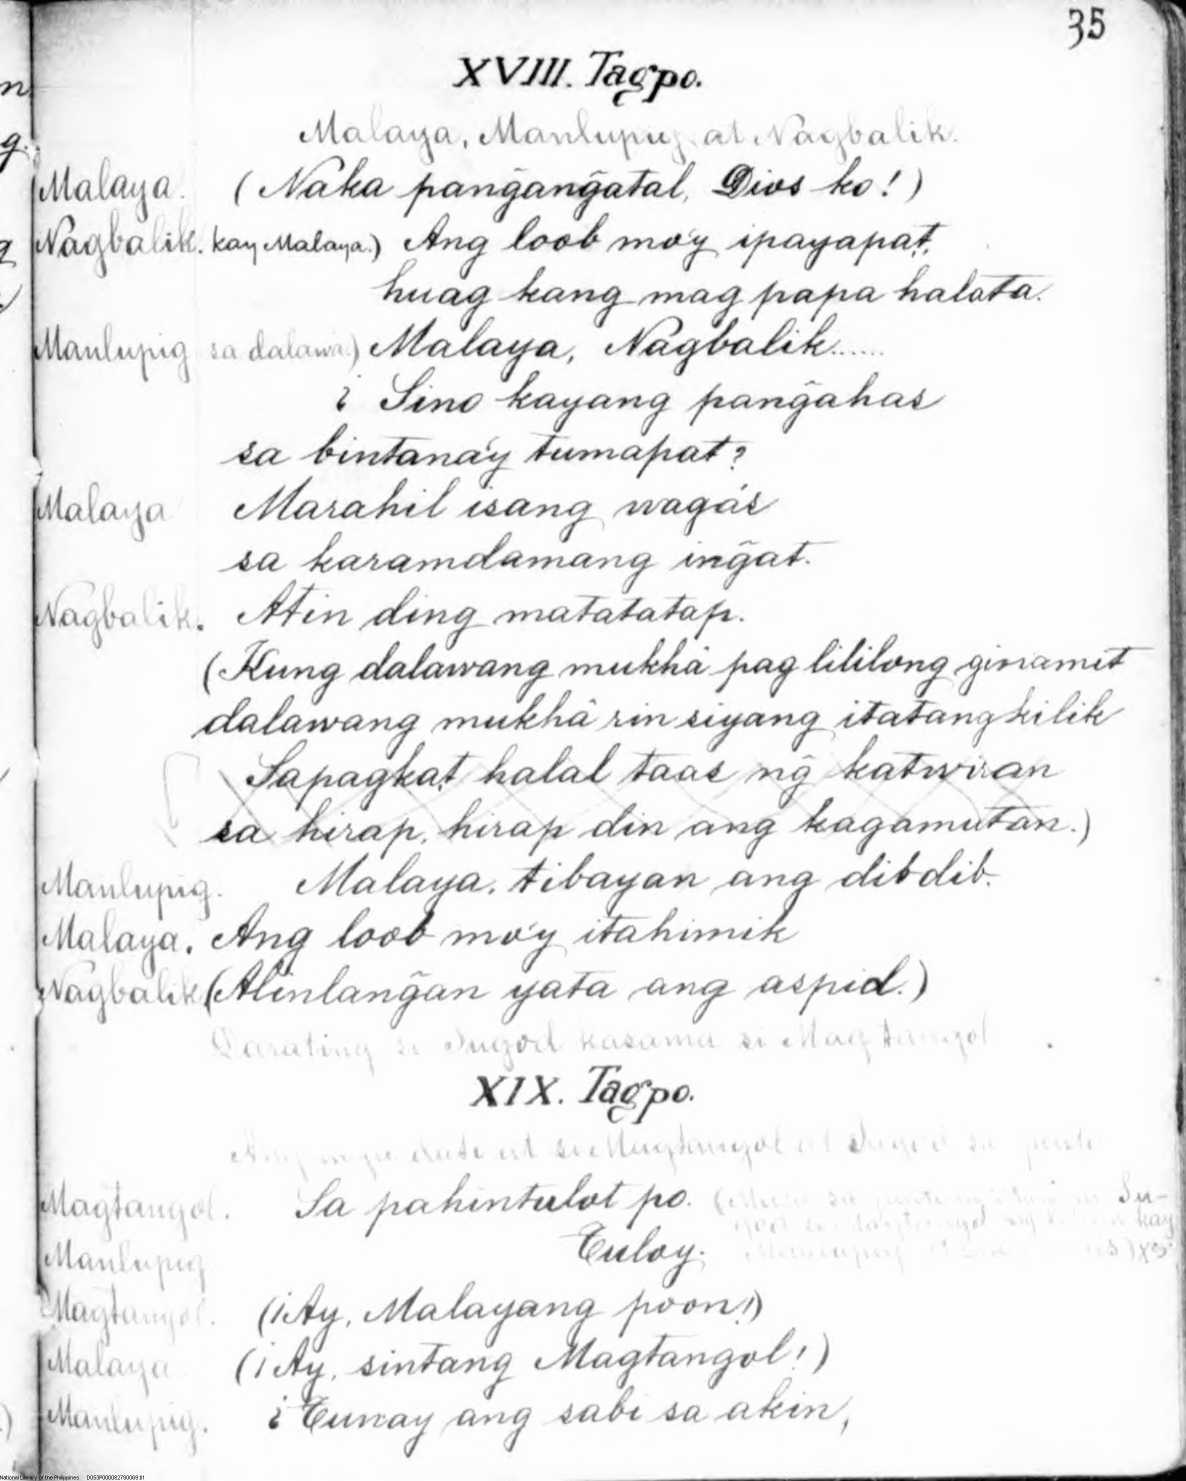 35
XVIII. Tagpo.
Malaya, Manlupig at Nagbalik.
Malaya. (Naka pang̃ang̃atal, Dios ko!)
Nagbalik. kay Malaya.) Ang loob mo'y ipayapat,
huag kang mag papa halata.
Manlupig sa dalawa.) Malaya, Nagbalik......
¿ Sino kayang pang̃ahas
sa bintana'y tumapat?
Malaya Marahil isang wagás
sa karamdamang ing̃at.
Nagbalik. Atin ding matatatap.
(Kung dalawang mukhâ pag lililong ginamit
dalawang mukhâ rin siyang itatangkilik
Sapagkat halal taas ng̃ katwiran
sa hirap, hirap din ang kagamutan.)
Manlupig. Malaya, tibayan ang dibdib.
Malaya. Ang loob mo'y itahimik
Nagbalik (Alinlang̃an yata ang aspid.)
Darating si Sugod kasama si Magtangol
XIX. Tagpo.
Ang mga dati at si Magtangol at Sugod sa
Magtangol. Sa pahintulot po. Su-
kay
Manlupig Tuloy.
Magtangol. (¡Ay, Malayang poon!)
Malaya (¡Ay, sintang Magtangol!)
Manlupig. ¿Tunay ang sabi sa akin,
National Library of the Philippines